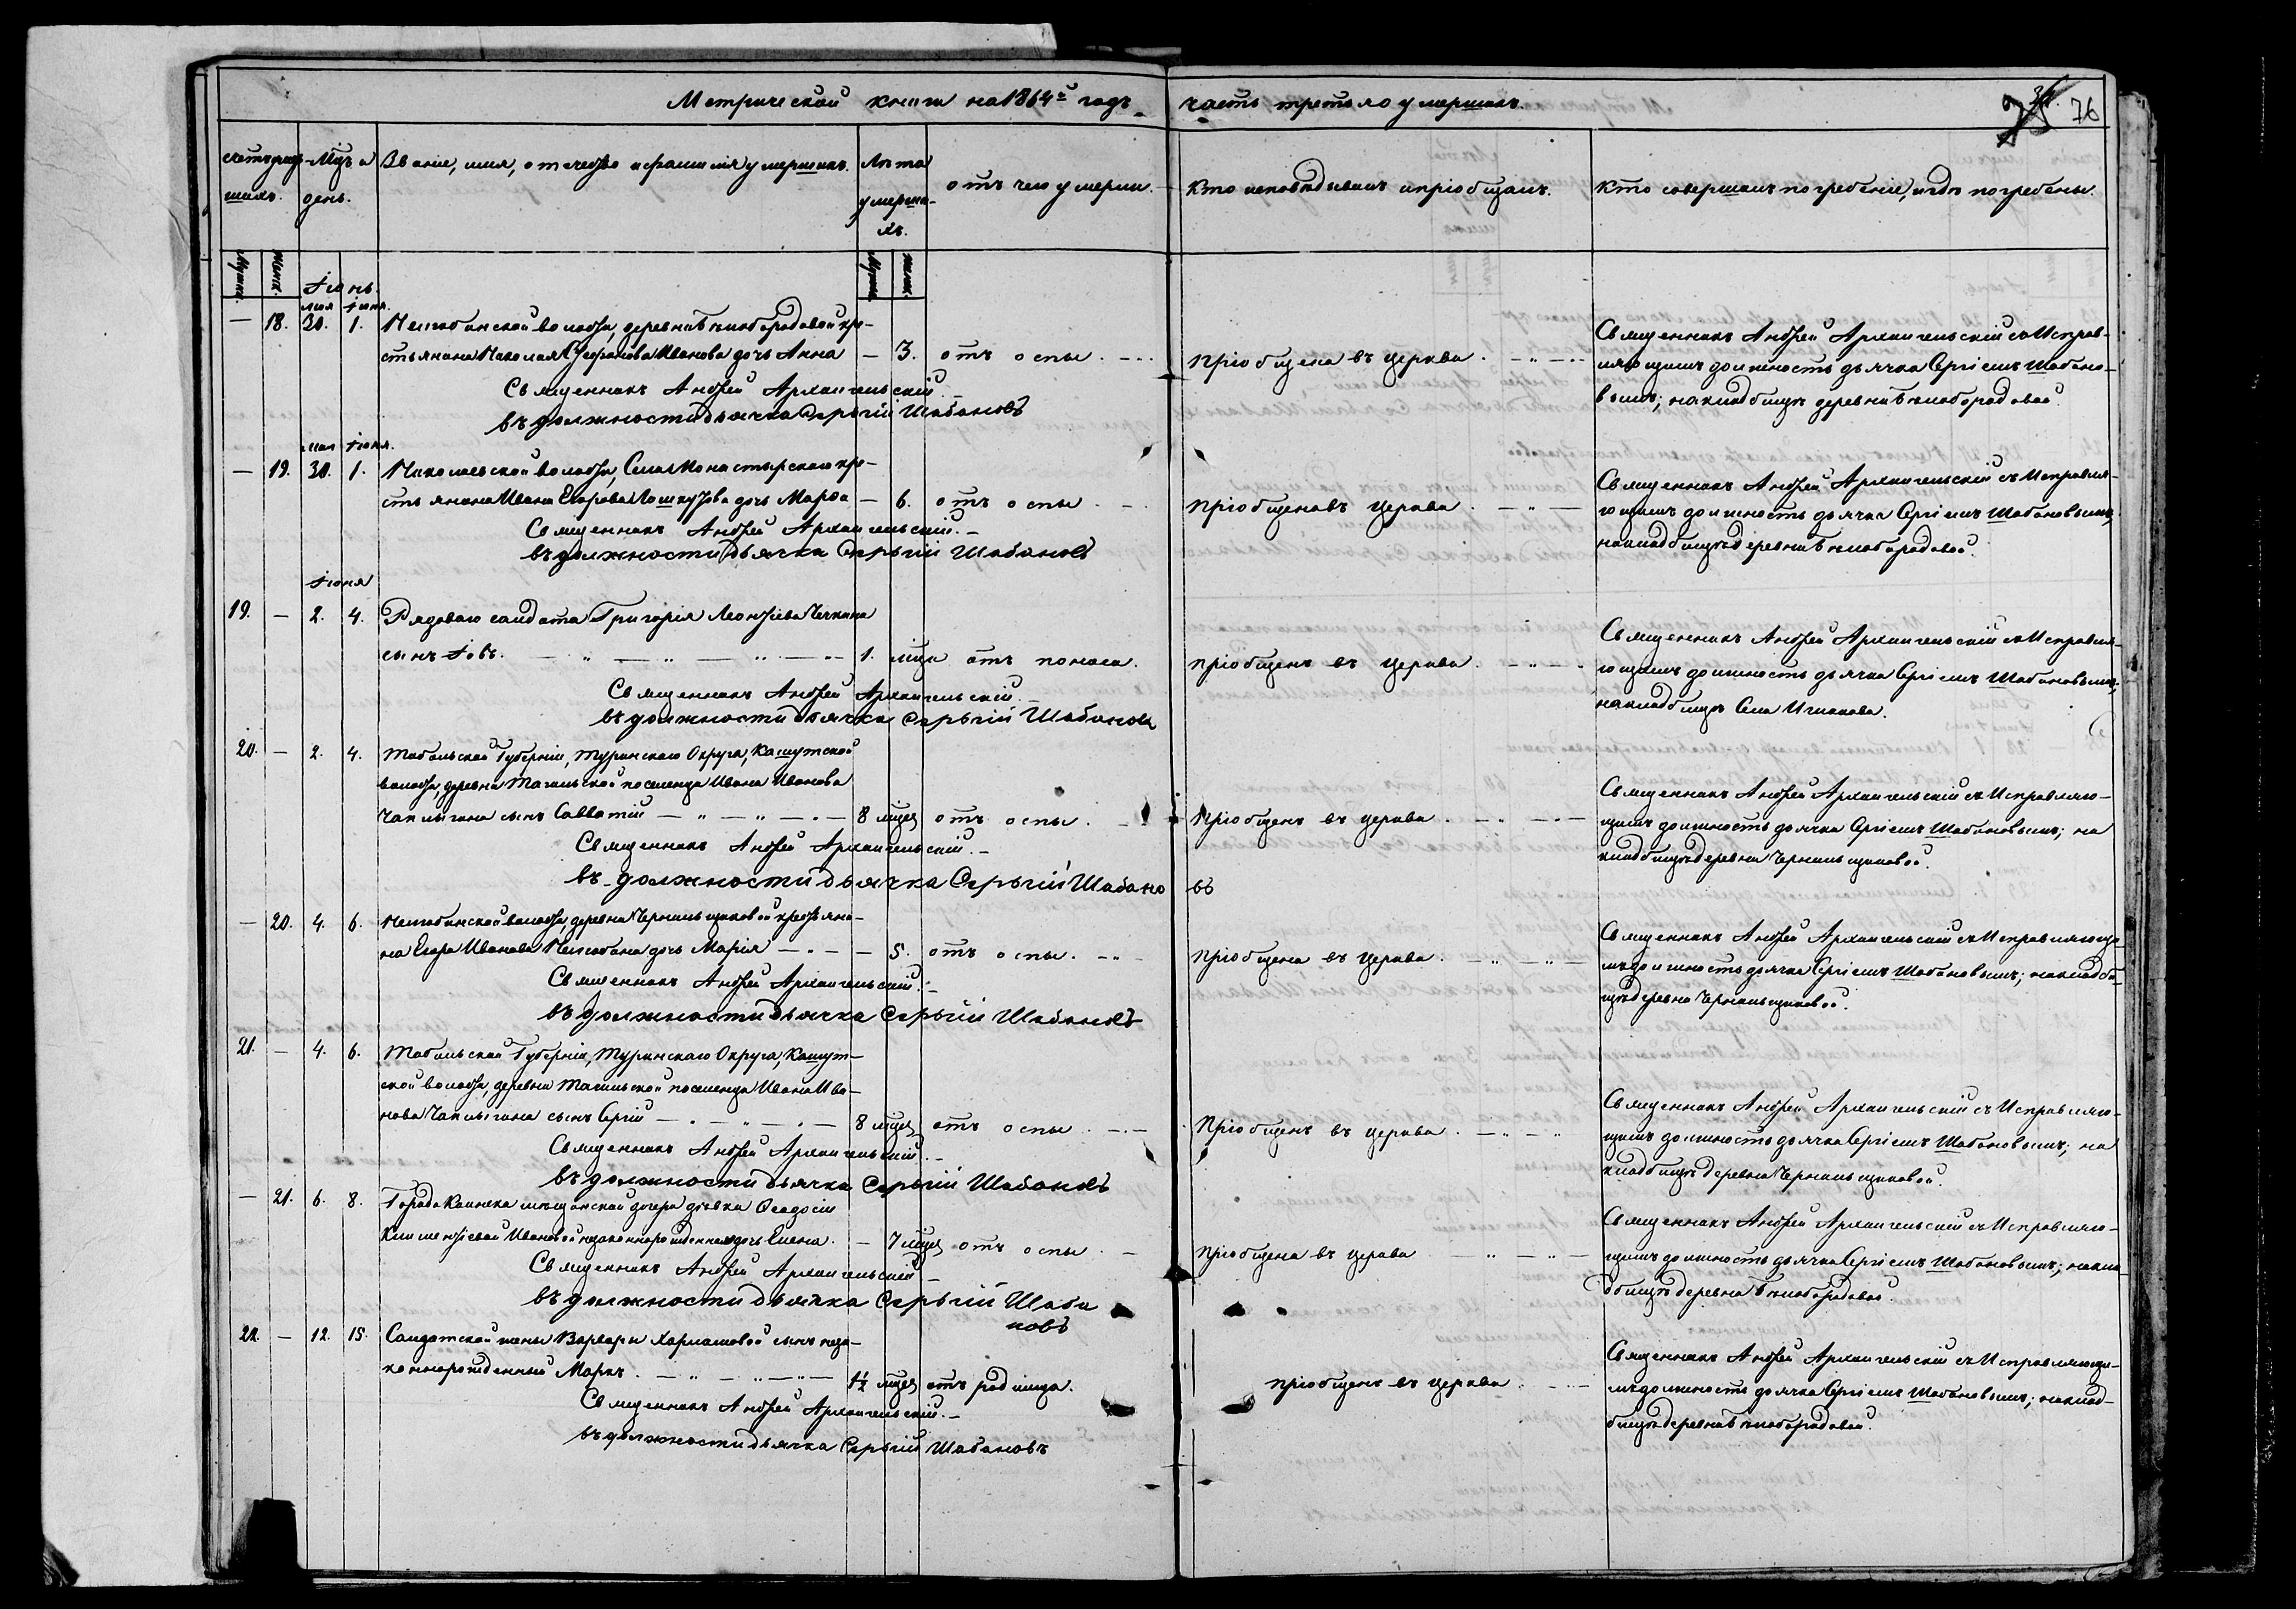 Метрической книги на 1864й годъ часть третья о умершихъ. 76
счетъ умер- Мцъ и Званіе, имя, отчество и фамилія умершихъ. Лѣта отъ чего умерли. Кто исповѣдывалъ и пріобщалъ. Кто совершалъ погребеніе, и гдѣ погребены.
шихъ. день. умерши-
хъ.
Мужск. Женск. Мужск. Женск.
Іюнь.
мая Іюня.
— 18. 30. 1. волости, деревни Бѣлобородовой кре-
стьянина Николая Иванова дочь Анна — 3. отъ оспы.
Священникъ Андрей Архангельскій
въ должности дьячка Сергій Шабановъ
пріобщена въ церкви.
Священникъ Андрей Архангельскій съ Исправ-
ляющимъ должность дьячка Сергіемъ Шабано-
вымъ; на кладбищѣ деревни Бѣлобородовой.
мая Іюня.
— 19. 30. 1. Николаевской волости, Села Монастырскаго кре-
стьянина Ивана Егорова дочь Марѳа — 6. отъ оспы
Священникъ Андрей Архангельскій.
въ должности дьячка Сергій Шабановъ
пріобщена въ церкви
Священникъ Андрей Архангельскій съ Исправля-
ющимъ должность дьячка Сергіемъ Шабановымъ;
на кладбищѣ деревни Бѣлобородовой.
Іюня
19. — 2. 4. Рядоваго солдата Григорія Леонтіева
сынъ Іовъ. 1. мца отъ поноса.
Священникъ Андрей Архангельскій.
въ должности дьячка Сергій Шабановъ
пріобщенъ въ церкви.
Священникъ Андрей Архангельскій съ Исправля-
ющимъ должность дьячка Сергіемъ Шабановымъ;
на кладбищѣ Села
20. — 2. 4. Тобольской Губерніи, Туринскаго Округа, Кашутской
волости, деревни Тагильской поселенца Ивана Иванова
Чаплыгина сынъ Савватій 8 мцев отъ оспы.
Священникъ Андрей Архангельскій.
въ должности дьячка Сергій Шабано въ
Пріобщенъ въ церкви.
Священникъ Андрей Архангельскій съ Исправляю-
щимъ должность дьячка Сергіемъ Шабановымъ; на
кладбищѣ деревни Чернильщиковой.
— 20. 4. 6. волости, деревни Чернильщиковой крестьяни-
на Егора Иванова дочь Марія — 5. отъ оспы.
Священникъ Андрей Архангельскій.
въ должности дьячка Сергій Шабановъ
пріобщена въ церкви.
Священникъ Андрей Архангельскій съ Исправляющи-
мъ должность дьячка Сергіемъ Шабановымъ; на кладби-
щѣ деревни Чернильщиковой.
21. — 4. 6. Тобольской Губерніи, Туринскаго Округа, Кашут-
ской волости, деревни Тагильской поселенца Ивана Ива-
нова Чаплыгина сынъ Сергій 8 мцев отъ оспы
Священникъ Андрей Архангельскій.
въ должности дьячка Сергій Шабановъ
Пріобщенъ въ церкви.
Священникъ Андрей Архангельскій съ Исправляю-
щимъ должность дьячка Сергіемъ Шабановымъ; на
кладбищѣ деревни Чернильщиковой.
— 21. 6. 8. Города Каинска мѣщанской дочери дѣвки Ѳеодосіи
Климентіевой Ивановой незаконнорожденная дочь Елена. — 7 мцев отъ оспы.
Священникъ Андрей Архангельскій
въ должности дьячка Сергій Шаба
новъ
пріобщена въ церкви
Священникъ Андрей Архангельскій съ Исправляю-
щимъ должность дьячка Сергіемъ Шабановымъ; на кла-
дбищѣ деревни Бѣлобородовой.
22. — 12. 15. Солдатской жены Варвары сынъ неза-
коннорожденный Маркъ. 1½ мцев отъ родимца.
Священникъ Андрей Архангельскій.
въ должности дьячка Сергій Шабановъ
пріобщенъ въ церкви
Священникъ Андрей Архангельскій съ Исправляющи-
мъ должность дьячка Сергіемъ Шабановымъ; на клад-
бищѣ деревни Бѣлобородовой.